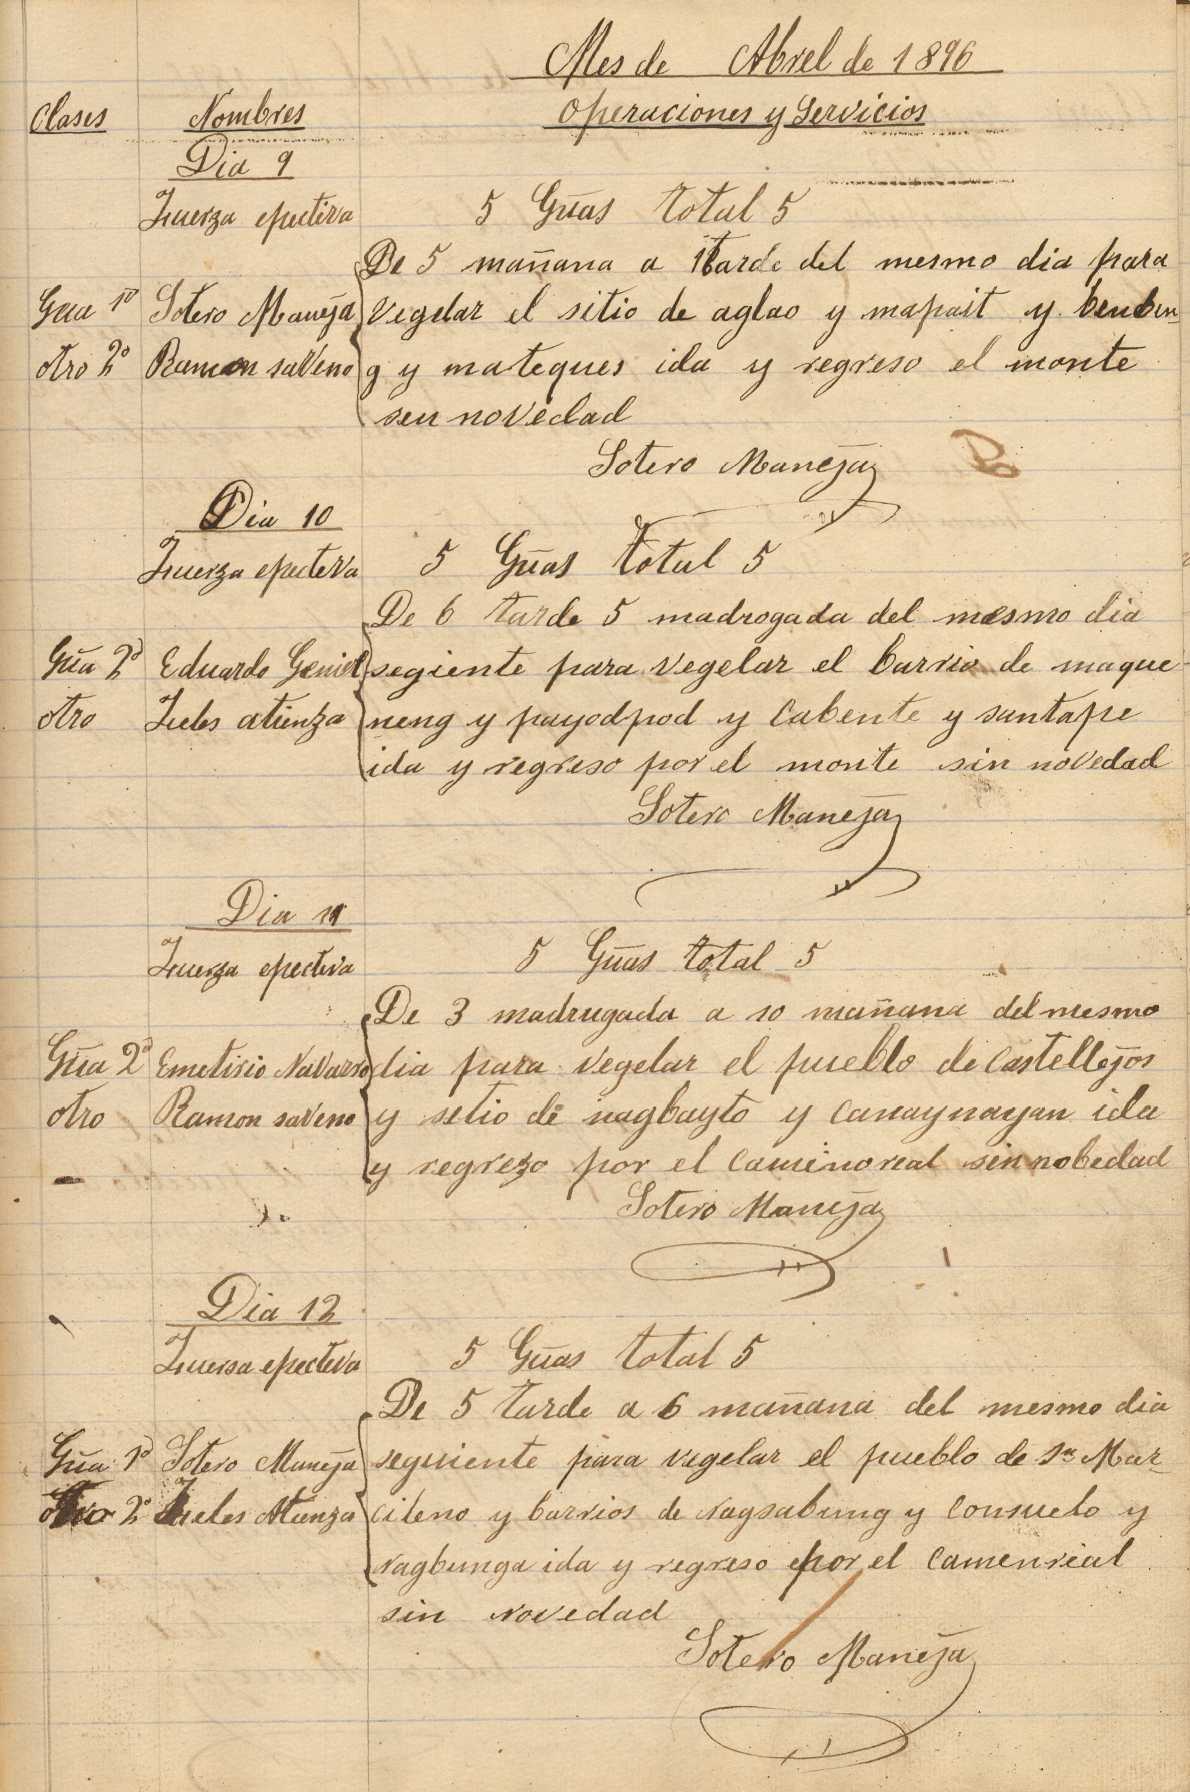 Mes de Abrel de 1896
Clases Nombres Operaciones y Servicios
Dia 9
Fuerza epectiva 5 Gūas total 5
De 5 mañana a tarde del mesmo dia para
Gūa 1º Sotero Maneja vegelar el sitio de aglao y mapait y
otro 2º Ramon saveno g y mateques ida y regreso el monte
sen novedad
Sotero Maneja
Dia 10
Fuerza epecteva 5 Gūas total 5
De 6 tarde 5 madrogada del mesmo dia
Gūa 2º Eduardo segiente para vegelar el barrio de maque
otro atienza neng y payodpod y cabente y santape
ida y regreso por el monte sin novedad
Sotero Maneja
Dia 11
Fuerza epectiva 5 Gūas total 5
De 3 madrugada a 10 mañana del mesmo
Gūa 2º Emetirio Navarro dia para vegelar el pueblo de Castellejos
otro Ramon saveno y setio de nagbayto y canaynayan ida
y regrezo por el camino real sin nobedad
Sotero Maneja
Dia 12
Fuersa epecteva 5 Gūas total 5
De 5 tarde a 6 mañana del mesmo dia
Gūa 1º Sotero Maneja seguiente para vegelar el pueblo de Sn Mar-
otro 2º Atienza cileno y barrios de nagsabung y consuelo y
nagbunga ida y regreso por el camenreal
sin novedad
Sotero Maneja